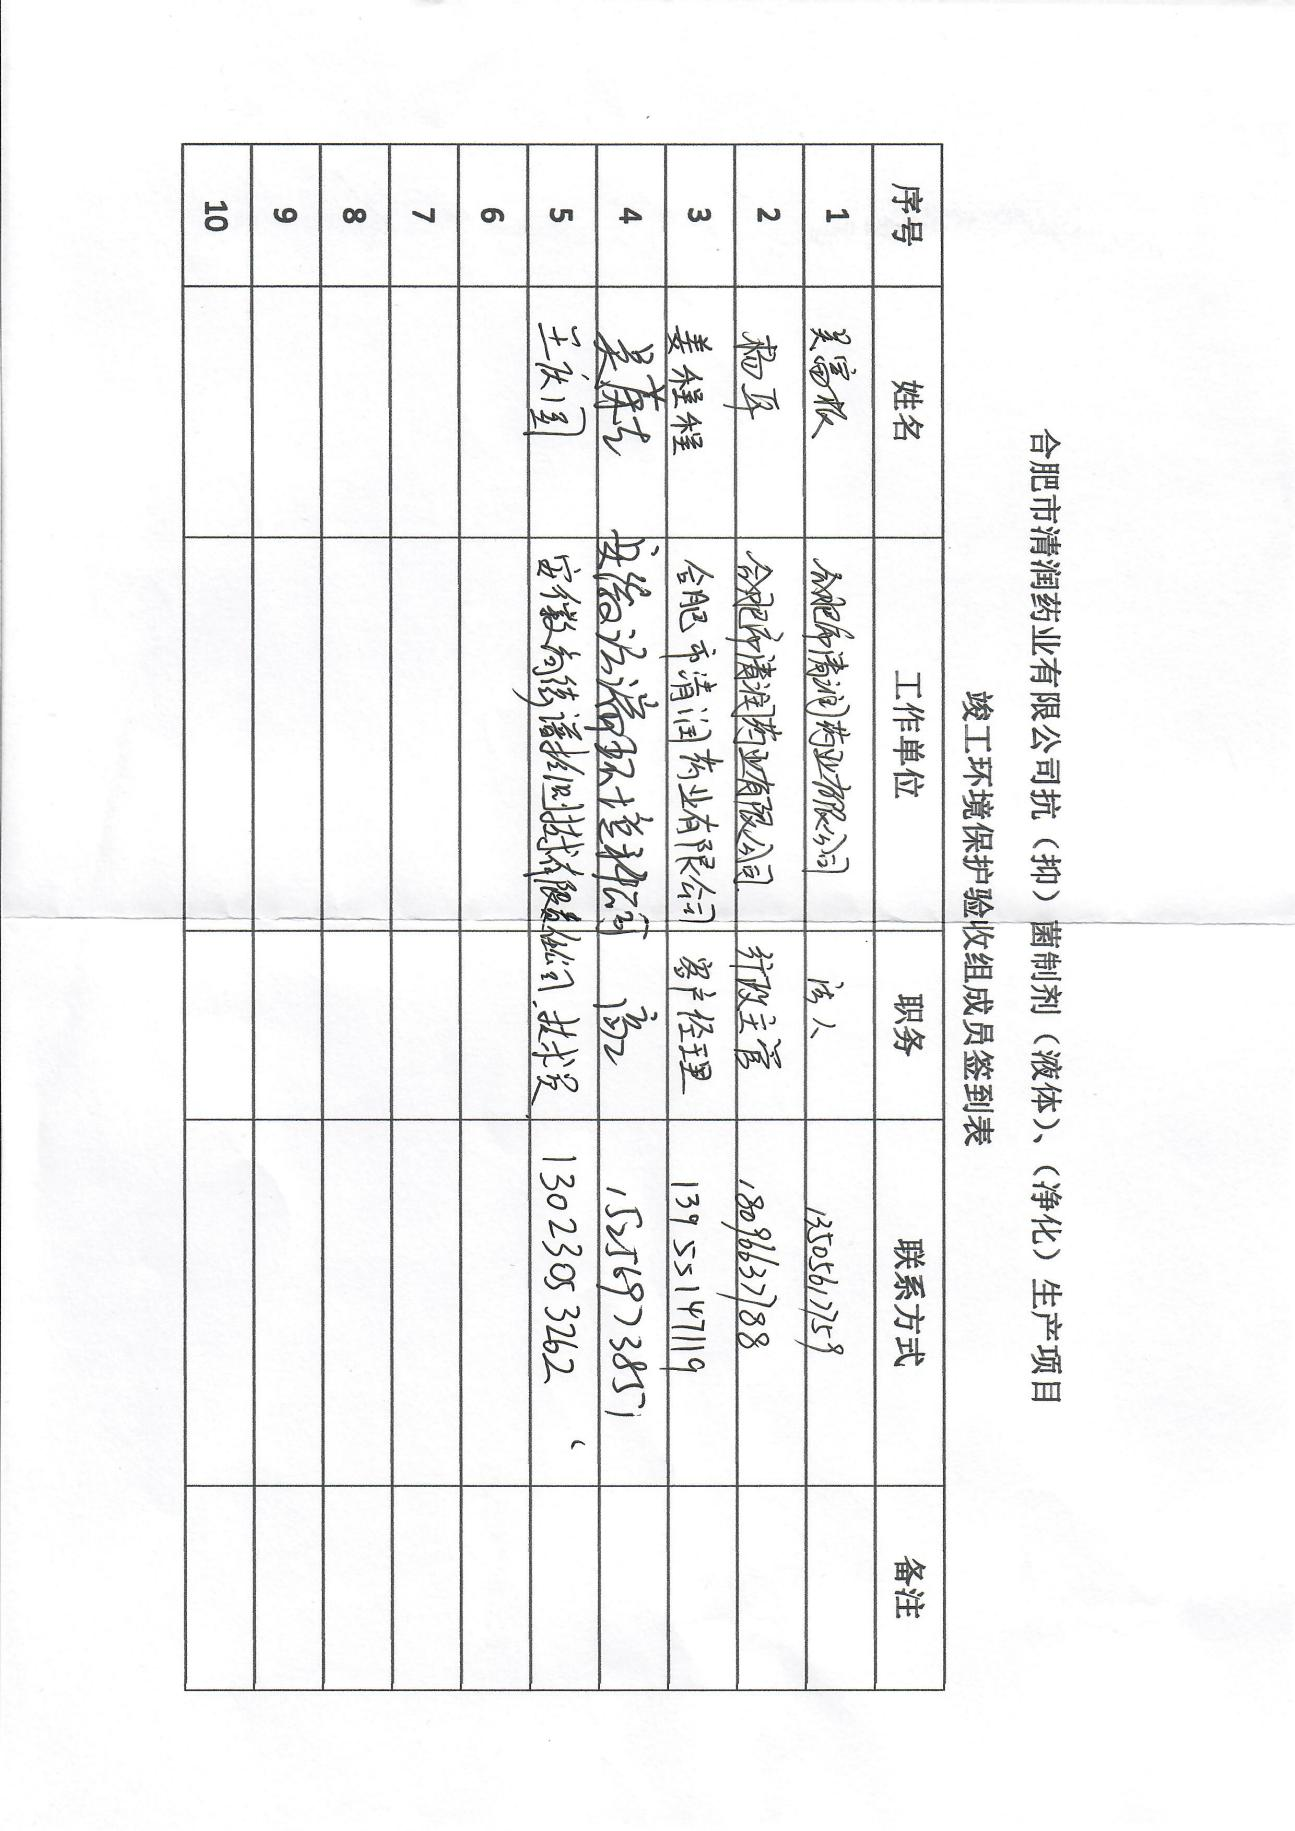 合肥市清润药业有限公司抗（抑）菌制剂（液体）、（净化）生产项目
竣工环境保护验收组成员签到表
序号 姓名 工作单位 职务 联系方式 备注
1 吴富根 合肥市清润药业有限公司 法人 13505617759
2 杨 合肥市清润药业有限公司 行政主管 18096637788
3 姜程程 合肥市清润药业有限公司 客户经理 13955147119
4 吴 安徽 环境科 公司 高工 15256973851
5 王 安徽 谱检测技术有限责任公司 技术员 13023053262
6
7
8
9
10